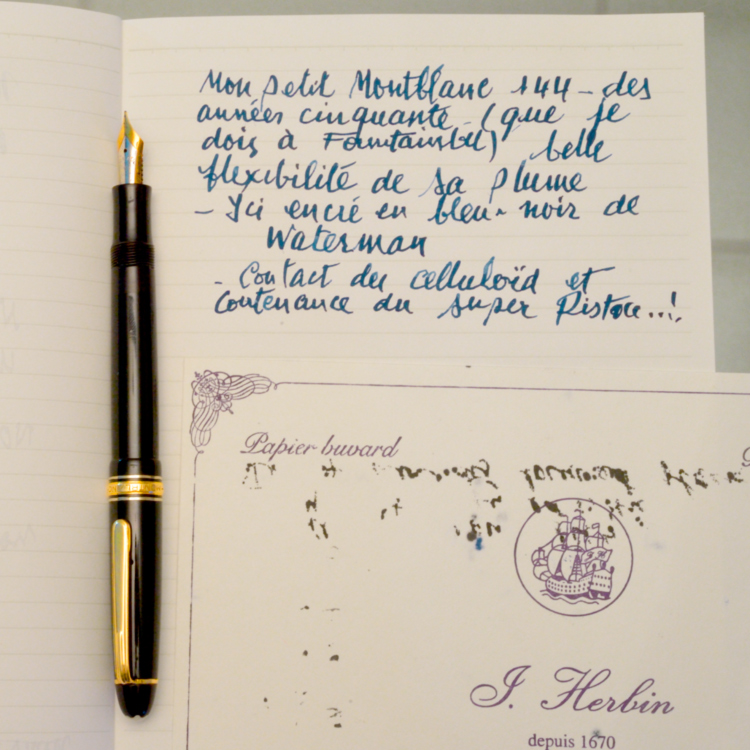 Mon petit Montblanc 144 - des
années cinquante - (que je
dois à Fountainbel) belle
flexibilité de sa plume
- Ici encré en bleu-noir de
Waterman
- Contact du celluloïd et
contenance du super Piston...!
Papier buvard
J. Herbin
depuis 1670